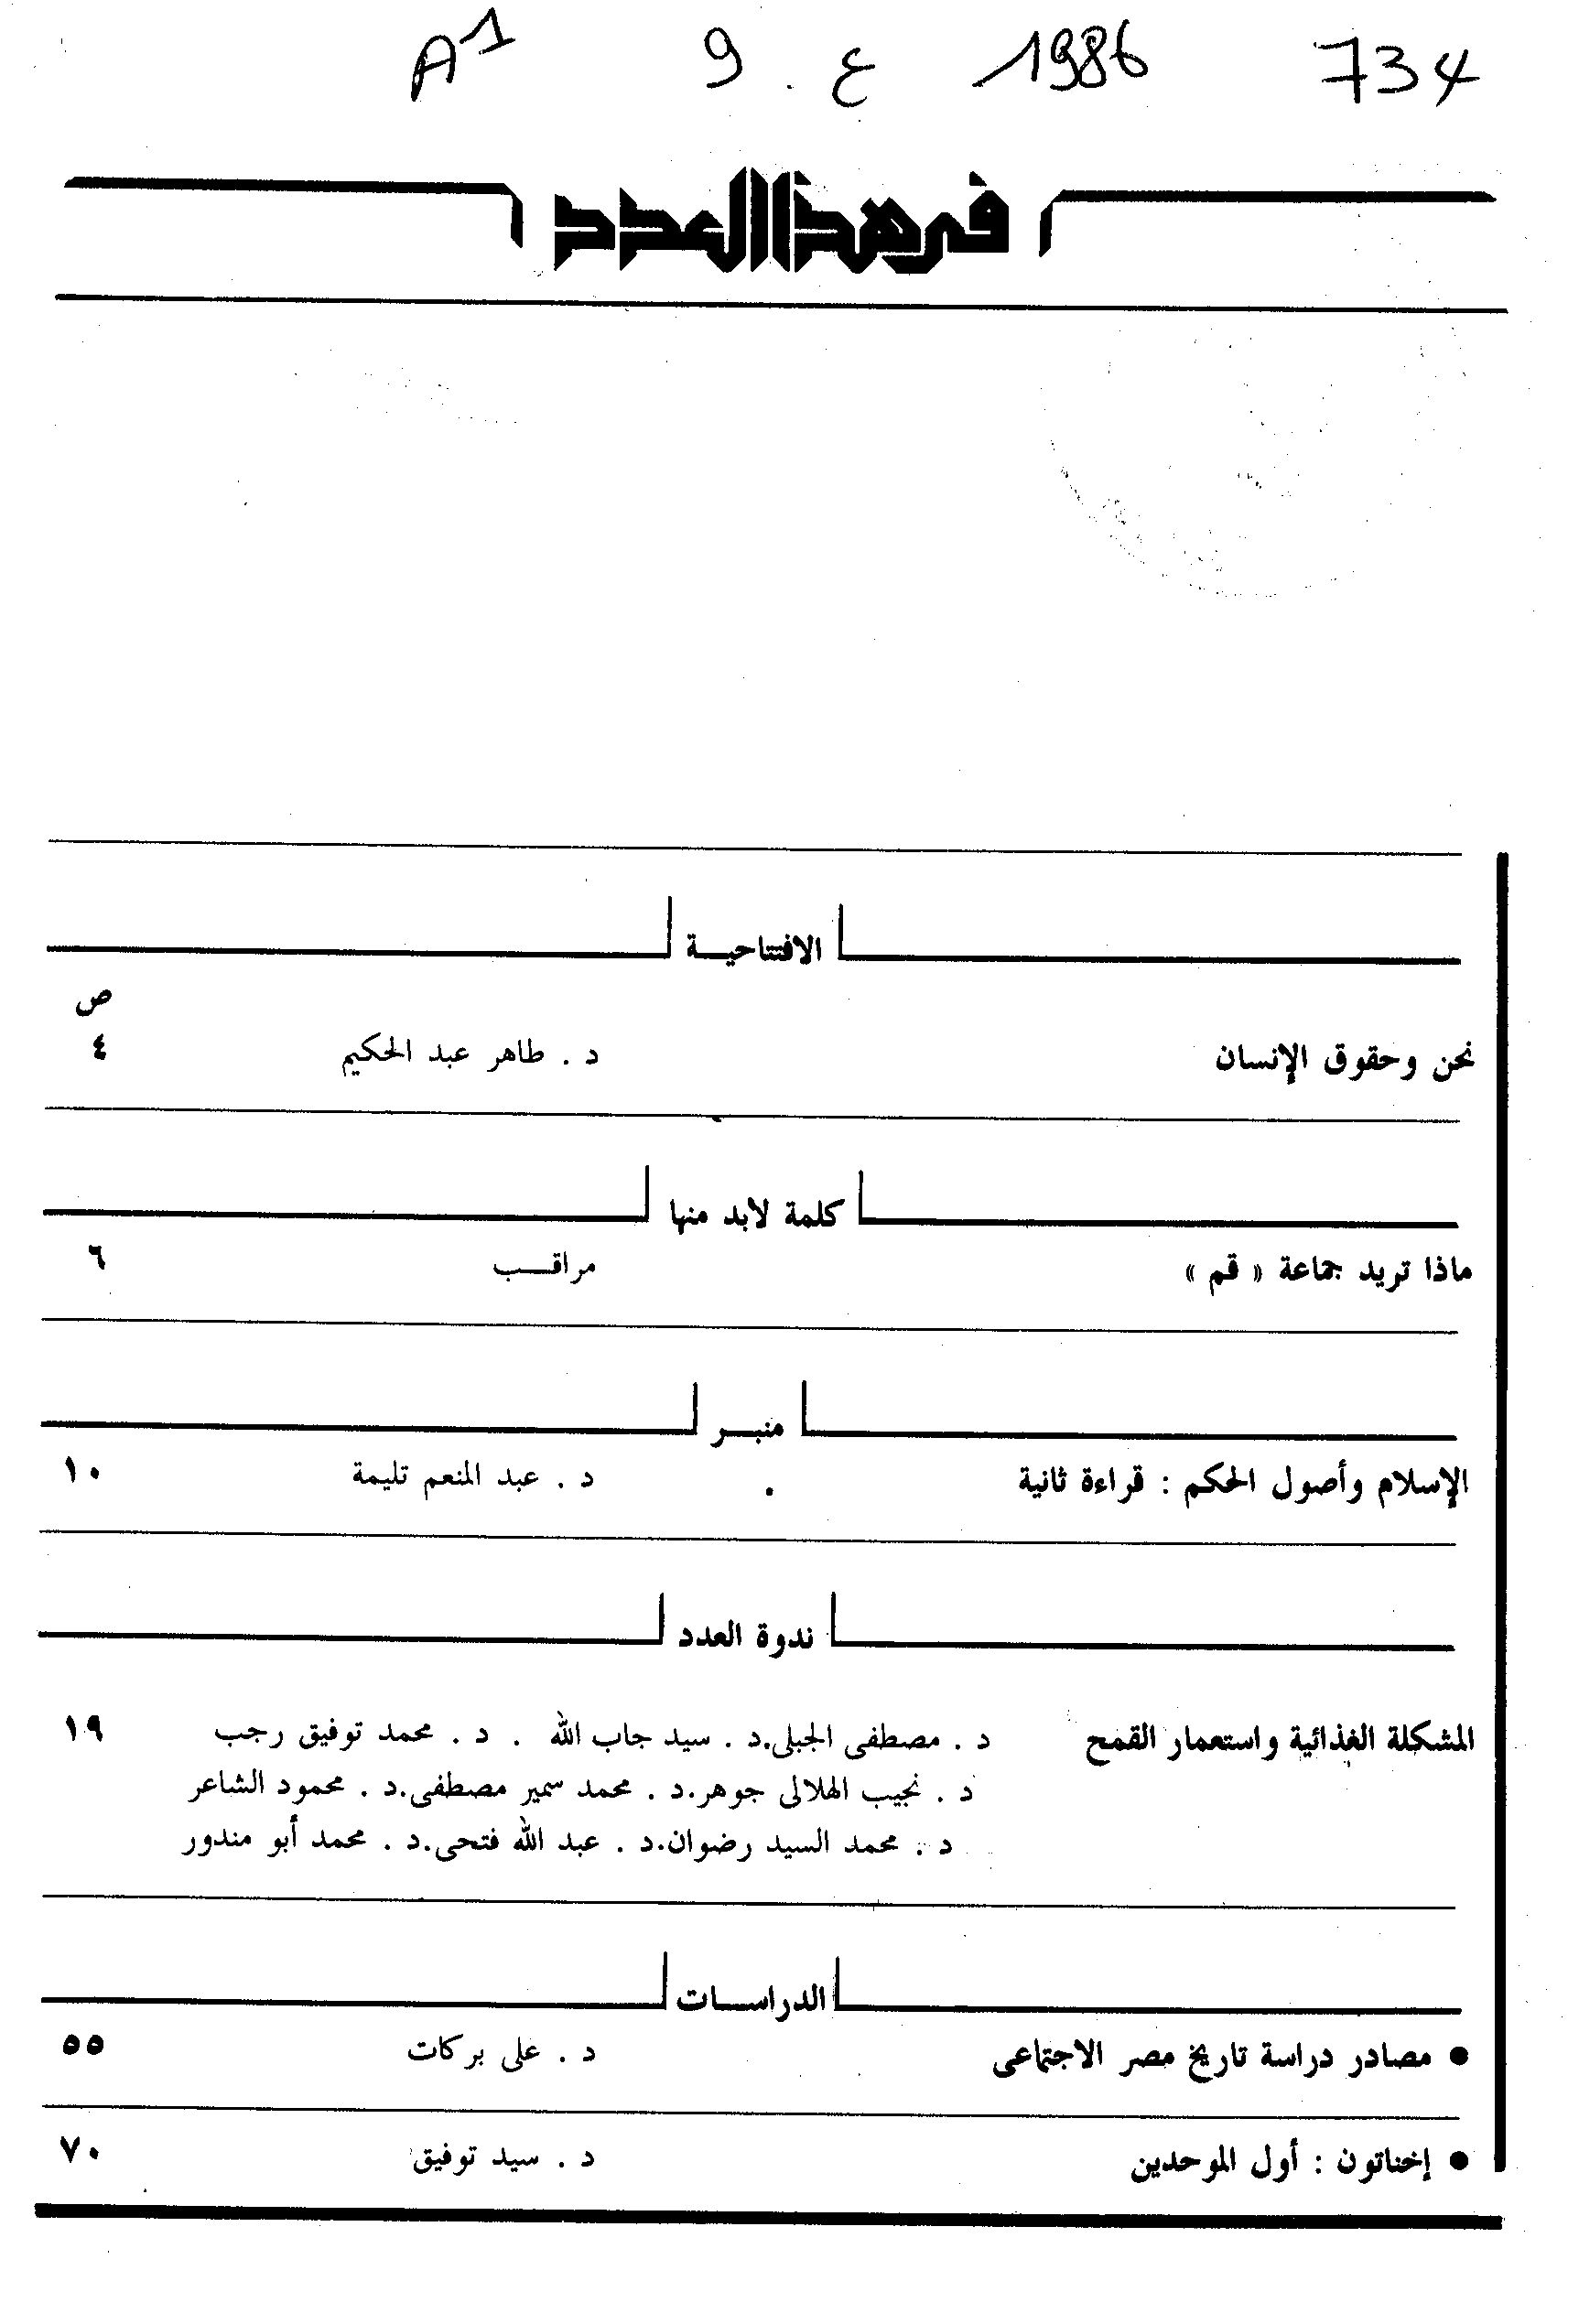 A1 9 . ع 1986 734
فى هذا العدد
الافتتاحيـــة
ص
نحن وحقوق الإنسان د . طاهر عبد الحكيم ٤
كلمة لابد منها
ماذا تريد جماعة « قم » مراقـــب ٦
منبـــر
الإسلام وأصول الحكم : قراءة ثانية د . عبد المنعم تليمة ١٠
ندوة العدد
المشكلة الغذائية واستعمار القمح د . مصطفى الجبلى.د . سيد جاب الله . د . محمد توفيق رجب ١٩
د . نجيب الهلالى جوهر.د . محمد سمير مصطفى.د . محمود الشاعر
د . محمد السيد رضوان.د . عبد الله فتحى.د . محمد أبو مندور
الدراســات
● مصادر دراسة تاريخ مصر الاجتماعى د . على بركات ٥٥
● إخناتون : أول الموحدين د . سيد توفيق ٧٠